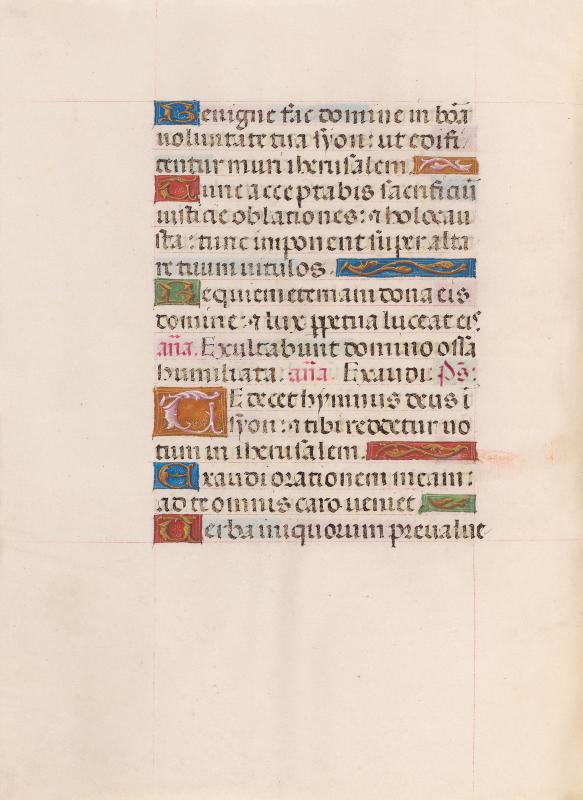 Benigne fac domine in bōā
voluntate tua syon: ut edifi
centur muri iherusalem.
Tunc acceptabis sacrificiū
iusticie oblationes: ⁊ holocau
sta: tunc imponent super alta
re tuum vitulos.
Requiem eternam dona eis
domine: ⁊ lux ꝑpetua luceat eis.
añā. Exultabunt domino ossa
humiliata. añā. Exaudi: Ps̄:
TE decet hymnus deus i
syon: ⁊ tibi reddetur vo
tum in iherusalem.
Exaudi orationem meam:
ad te omnis caro veniet.
Verba iniquorum prevalue